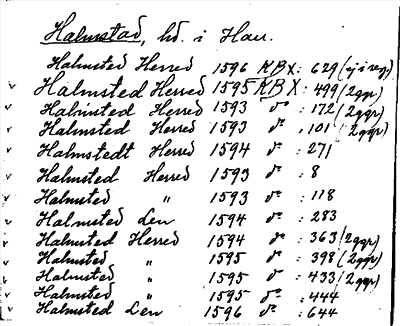 Halmstad, hd. i Hall.
Halmsted Herred 1596 KBX : 629 (ej i reg)
Halmsted Herred 1595 KBX : 499 (2ggr)
Halmsted Herred 1593 do : 172 (2ggr)
Halmsted Herred 1593 do : 101 (2ggr)
Halmstedt Herred 1594 do : 271
Halmsted Herred 1593 do : 8
Halmsted " 1593 do : 118
Halmsted Len 1594 do : 283
Halmsted Herred 1594 do : 363 (2ggr)
Halmsted " 1595 do : 398 (2ggr)
Halmsted " 1595 do : 433 (2ggr)
Halmsted " 1595 do : 444
Halmsted Len 1596 do : 644